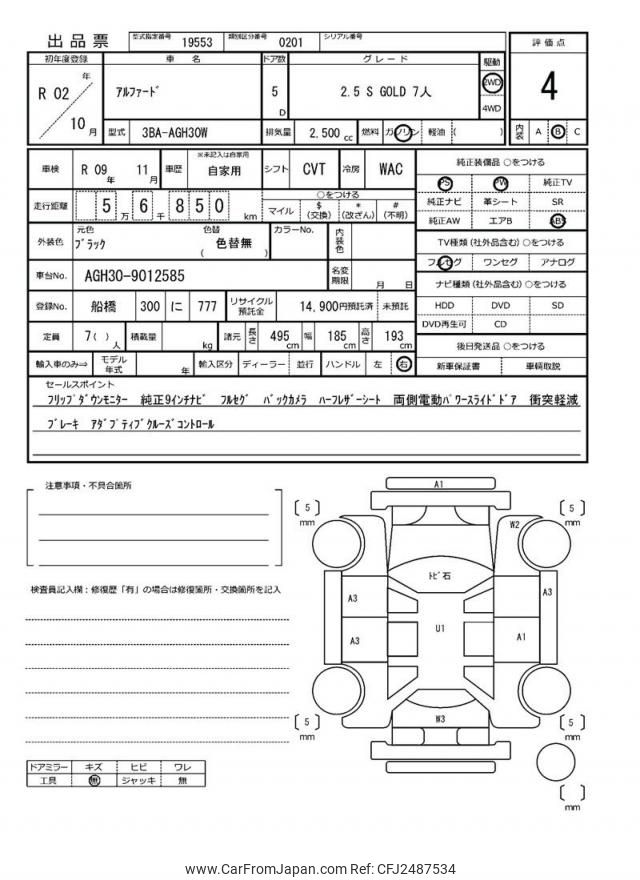 出品票
型式指定番号 19553 類別区分番号 0201 シリアル番号
評価点
初年度登録 車名 ドア数 グレード 駆動
R 02 年 10 月
アルファード
5 D
2.5 S GOLD 7人
2WD
4WD
4
型式 3BA-AGH30W 排気量 2,500 cc 燃料 ガソリン 軽油 ( )
内装 A B C
車検 R 09 年 11 月 車歴 ※未記入は自家用 自家用 シフト CVT 冷房 WAC
純正装備品 ○をつける
PS PW 純正TV
純正ナビ 革シート SR
純正AW エアB ABS
走行距離 5 万 6 千 8 5 0 km
○をつける
マイル $(交換) *(改ざん) #(不明)
外装色 元色 ブラック 色替 色替無 ( ) カラーNo. 内装色
TV種類(社外品含む)○をつける
フルセグ ワンセグ アナログ
車台No. AGH30-9012585 名変期限 月 日
ナビ種類(社外品含む)○をつける
HDD DVD SD
DVD再生可 CD
登録No. 船橋 300 に 777 リサイクル預託金 14,900円預託済 未預託
定員 7( ) 人 積載量 kg 諸元 長さ 495 cm 幅 185 cm 高さ 193 cm
後日発送品 ○をつける
新車保証書 車輌取説
輸入車のみ⇒ モデル年式 年 輸入区分 ディーラー 並行 ハンドル 左 右
セールスポイント
フリップダウンモニター 純正9インチナビ フルセグ バックカメラ ハーフレザーシート 両側電動パワースライドドア 衝突軽減
ブレーキ アダプティブクルーズコントロール
注意事項・不具合箇所
検査員記入欄:修復歴「有」の場合は修復箇所・交換箇所を記入
A1
5 mm
5 mm
W2
トビ石
A3
A3
U1
A3
A1
W3
5 mm
5 mm
mm
ドアミラー キズ ヒビ ワレ
工具 無 ジャッキ 無
www.CarFromJapan.com Ref: CFJ2487534